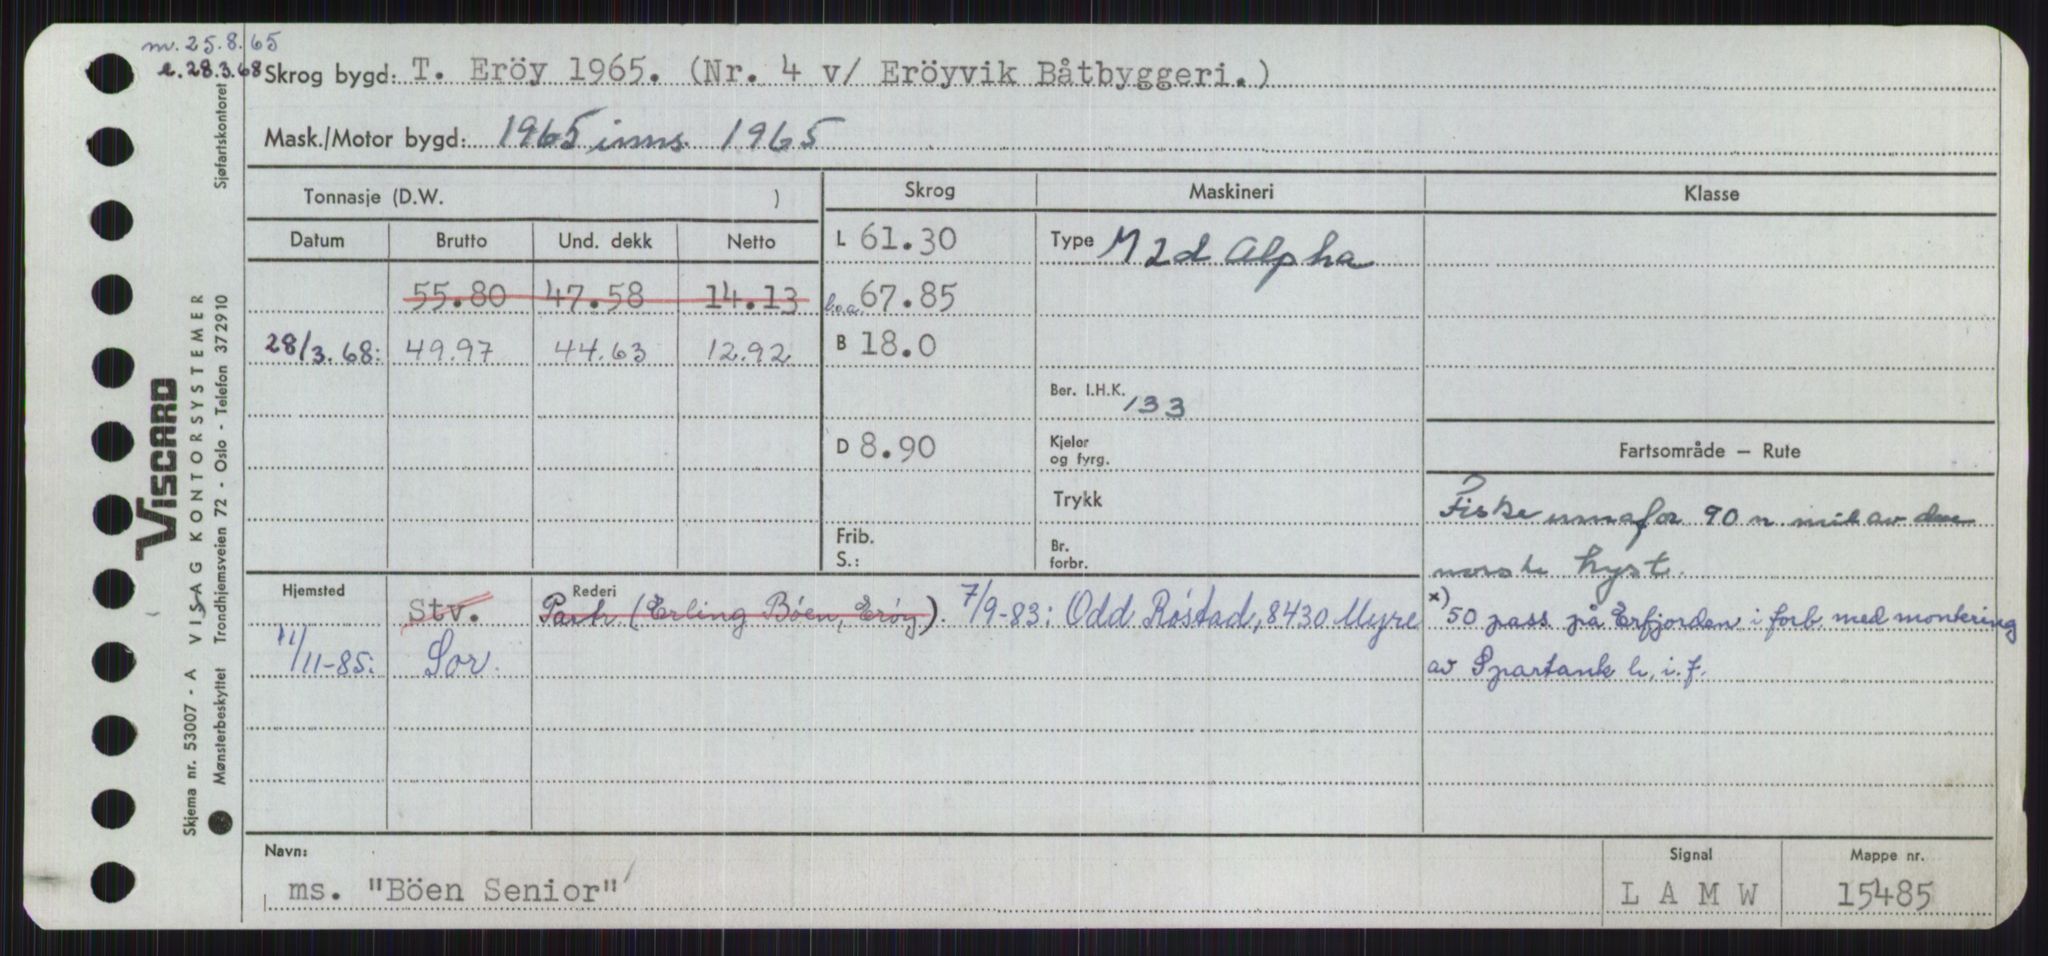 m. 25.8.65
e. 28.3.68
Skrog bygd: T. Eröy 1965. (Nr. 4 v/ Eröyvik Båtbyggeri.)
Mask./Motor bygd: 1965 inns. 1965
Tonnasje (D.W. )
Skrog
Maskineri
Klasse
Datum Brutto Und. dekk Netto
L 61.30
Type M 2d Alpha
55.80 47.58 14.13
l.o.a. 67.85
28/3.68: 49.97 44.63 12.92
B 18.0
Ber. I.H.K. 133
D 8.90
Kjeler
og fyrg.
Trykk
Frib.
S.:
Br.
forbr.
Fartsområde — Rute
Fiske innafor 90 n mil av den
norske kyst.
x) 50 pass på Erfjorden i forb med montering
av Spartank h, i. f.
Hjemsted Stv.
Rederi
Partr (Erling Böen, Eröy). 7/9-83: Odd Röstad, 8430 Myre
11/11-85: Sor.
Navn:
ms. "Böen Senior"
Signal
L A M W
Mappe nr.
15485
VISCARD
Skjema nr. 53007 - A VISAG KONTORSYSTEMER
Mønsterbeskyttet Trondhjemsveien 72 - Oslo - Telefon 372910
Sjøfartskontoret